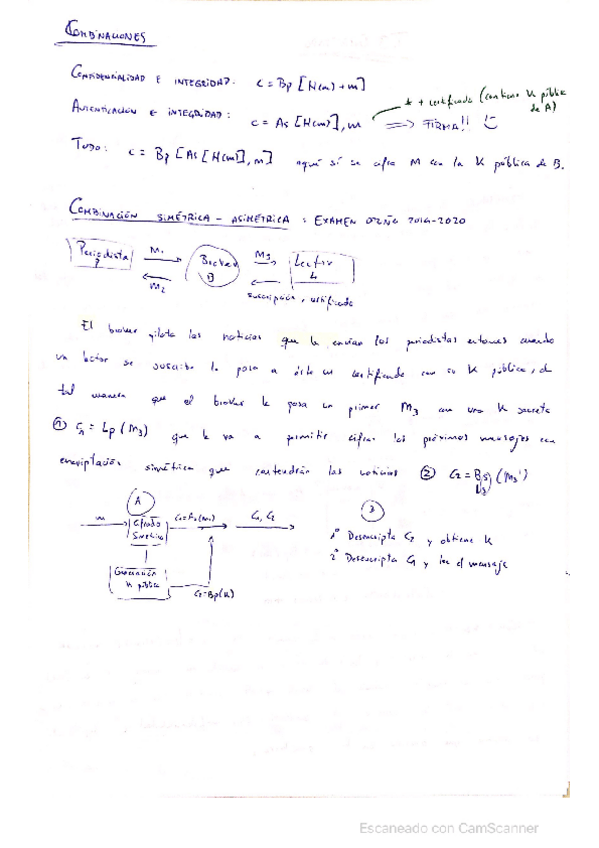 COMBINACIONES
CONFIDENCIALIDAD E INTEGRIDAD: c = Bp [H(m) + m]
AUTENTICACIÓN E INTEGRIDAD: c = As [H(m)], m
* + certificado (contiene K pública de A)
=> FIRMA!!
TODO: c = Bp [As [H(m)], m] aquí sí se cifra M con la K pública de B.
COMBINACIÓN SIMÉTRICA - ASIMÉTRICA: EXAMEN 2019-2020
Periodista P
M1
M2
Broker B
M3
Lector L
suscripción, certificado
El broker las noticias que le envían los periodistas entonces cuando
un lector se suscribe le pasa a éste un certificado con su K pública, de
tal manera que el broker le pasa un primer M3 con una K secreta
① C1 = Lp (M3) que le va a permitir cifrar los próximos mensajes con
encriptación simétrica que contendrán las noticias ② C2 = (M3')
A
m
Cifrado Simétrico
C1, C2
Generación K pública
C2 = Bp(K)
1º Desencripta C2 y obtiene K
2º Desencripta C1 y lee el mensaje
Escaneado con CamScanner